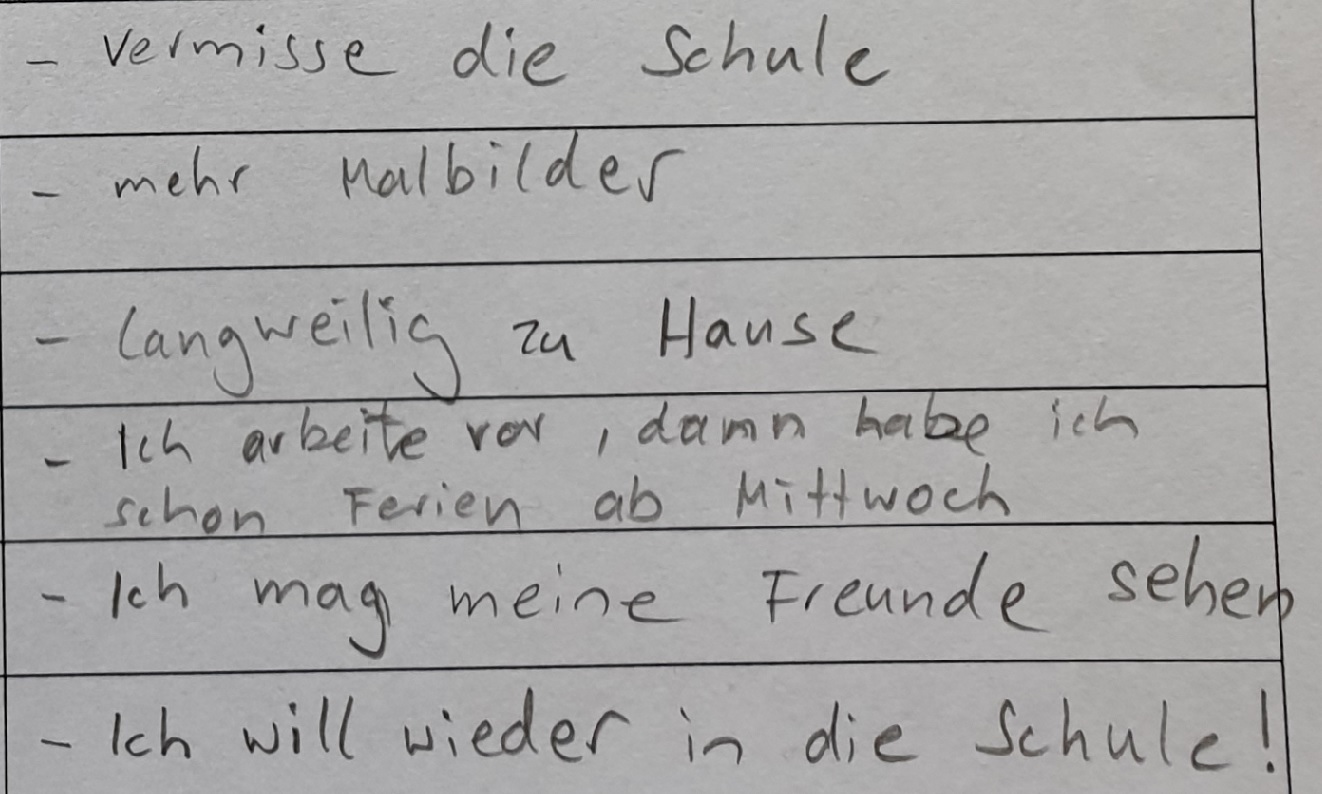 - vermisse die Schule
- mehr Malbilder
- langweilig zu Hause
- Ich arbeite vor, dann habe ich
schon Ferien ab Mittwoch
- Ich mag meine Freunde sehen
- Ich will wieder in die Schule!